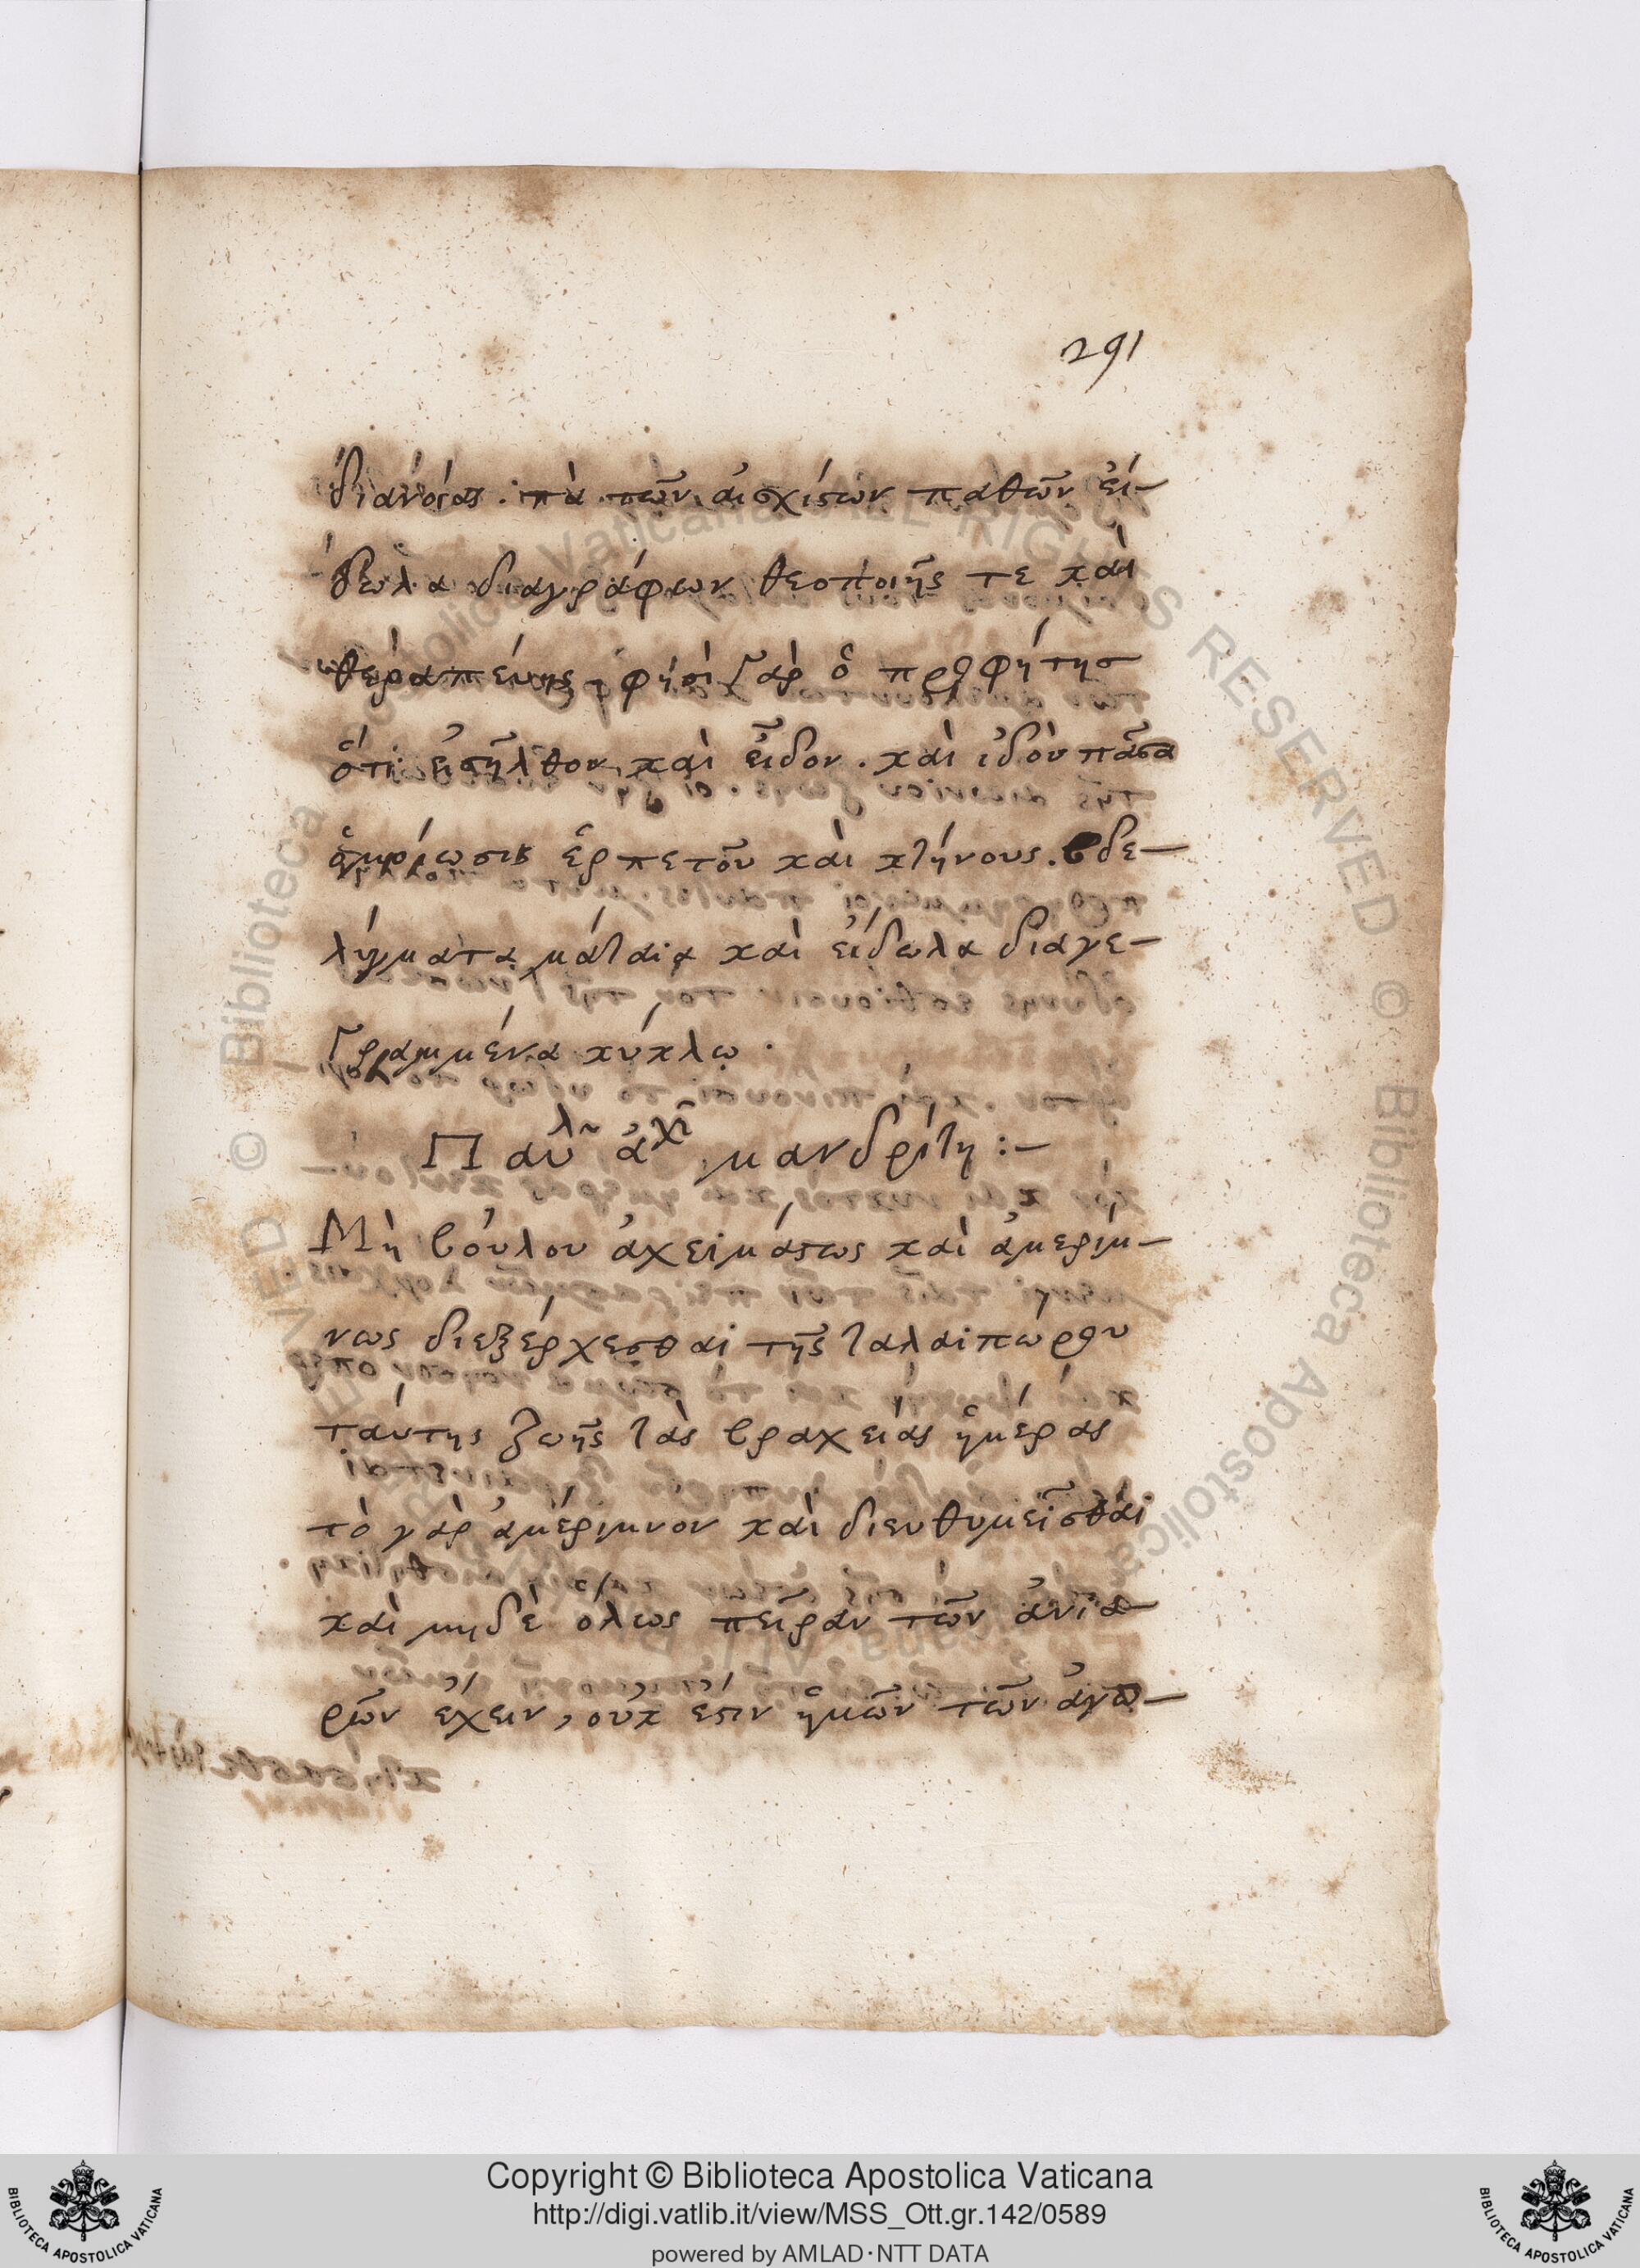 291
διανοίας. τὰ τῶν αἰσχίστων παθῶν εἴ-
δωλα διαγράφων θεοποιῇς τε καὶ
θεραπεύῃς. φησὶ γὰρ ὁ προφήτης
ὅτι εἰσῆλθον καὶ εἶδον. καὶ ἰδοὺ πᾶσα
ὁμοίωσις ἑρπετοῦ καὶ κτήνους. βδε-
λύγματα μάταια καὶ εἴδωλα διαγε-
γραμμένα κύκλῳ.
Παύλῳ ἀρχιμανδρίτῃ:-
Μὴ βούλου ἀχειμάστως καὶ ἀμερίμ-
νως διεξέρχεσθαι τῆς ταλαιπώρου
ταύτης ζωῆς τὰς βραχείας ἡμέρας
τὸ γὰρ ἀμέριμνον καὶ διευθυμεῖσθαι
καὶ μηδὲ ὅλως πεῖραν τῶν ἀνια-
ρῶν ἔχειν, οὐκ ἔστιν ἡμῶν τῶν ἀγω-
© Biblioteca Apostolica Vaticana ALL RIGHTS RESERVED © Biblioteca Apostolica Vaticana ALL RIGHTS RESERVED
Copyright © Biblioteca Apostolica Vaticana
http://digi.vatlib.it/view/MSS_Ott.gr.142/0589
powered by AMLAD·NTT DATA
BIBLIOTECA APOSTOLICA VATICANA
BIBLIOTECA APOSTOLICA VATICANA